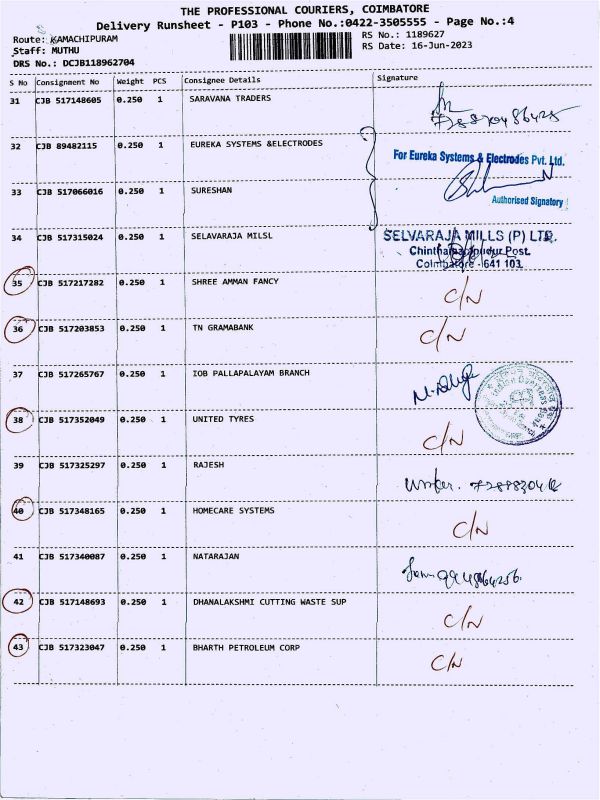 THE PROFESSIONAL COURIERS, COIMBATORE
Delivery Runsheet - P103 - Phone No.:0422-3505555 - Page No.:4
Route: KAMACHIPURAM
RS No.: 1189627
Staff: MUTHU
RS Date: 16-Jun-2023
DRS No.: DCJB118962704
S No Consignment No Weight PCS Consignee Details Signature
31 CJB 517148605 0.250 1 SARAVANA TRADERS
32 CJB 89482115 0.250 1 EUREKA SYSTEMS &ELECTRODES
For Eureka Systems & Electrodes Pvt. Ltd.
33 CJB 517066016 0.250 1 SURESHAN
Authorised Signatory
34 CJB 517315024 0.250 1 SELAVARAJA MILSL
SELVARAJA MILLS (P) LTD.
Post.
Coimbatore - 641 103.
35 CJB 517217282 0.250 1 SHREE AMMAN FANCY C/N
36 CJB 517203853 0.250 1 TN GRAMABANK C/N
37 CJB 517265767 0.250 1 IOB PALLAPALAYAM BRANCH
38 CJB 517352049 0.250 1 UNITED TYRES C/N
39 CJB 517325297 0.250 1 RAJESH
40 CJB 517348165 0.250 1 HOMECARE SYSTEMS C/N
41 CJB 517340087 0.250 1 NATARAJAN
42 CJB 517148693 0.250 1 DHANALAKSHMI CUTTING WASTE SUP C/N
43 CJB 517323047 0.250 1 BHARTH PETROLEUM CORP C/N